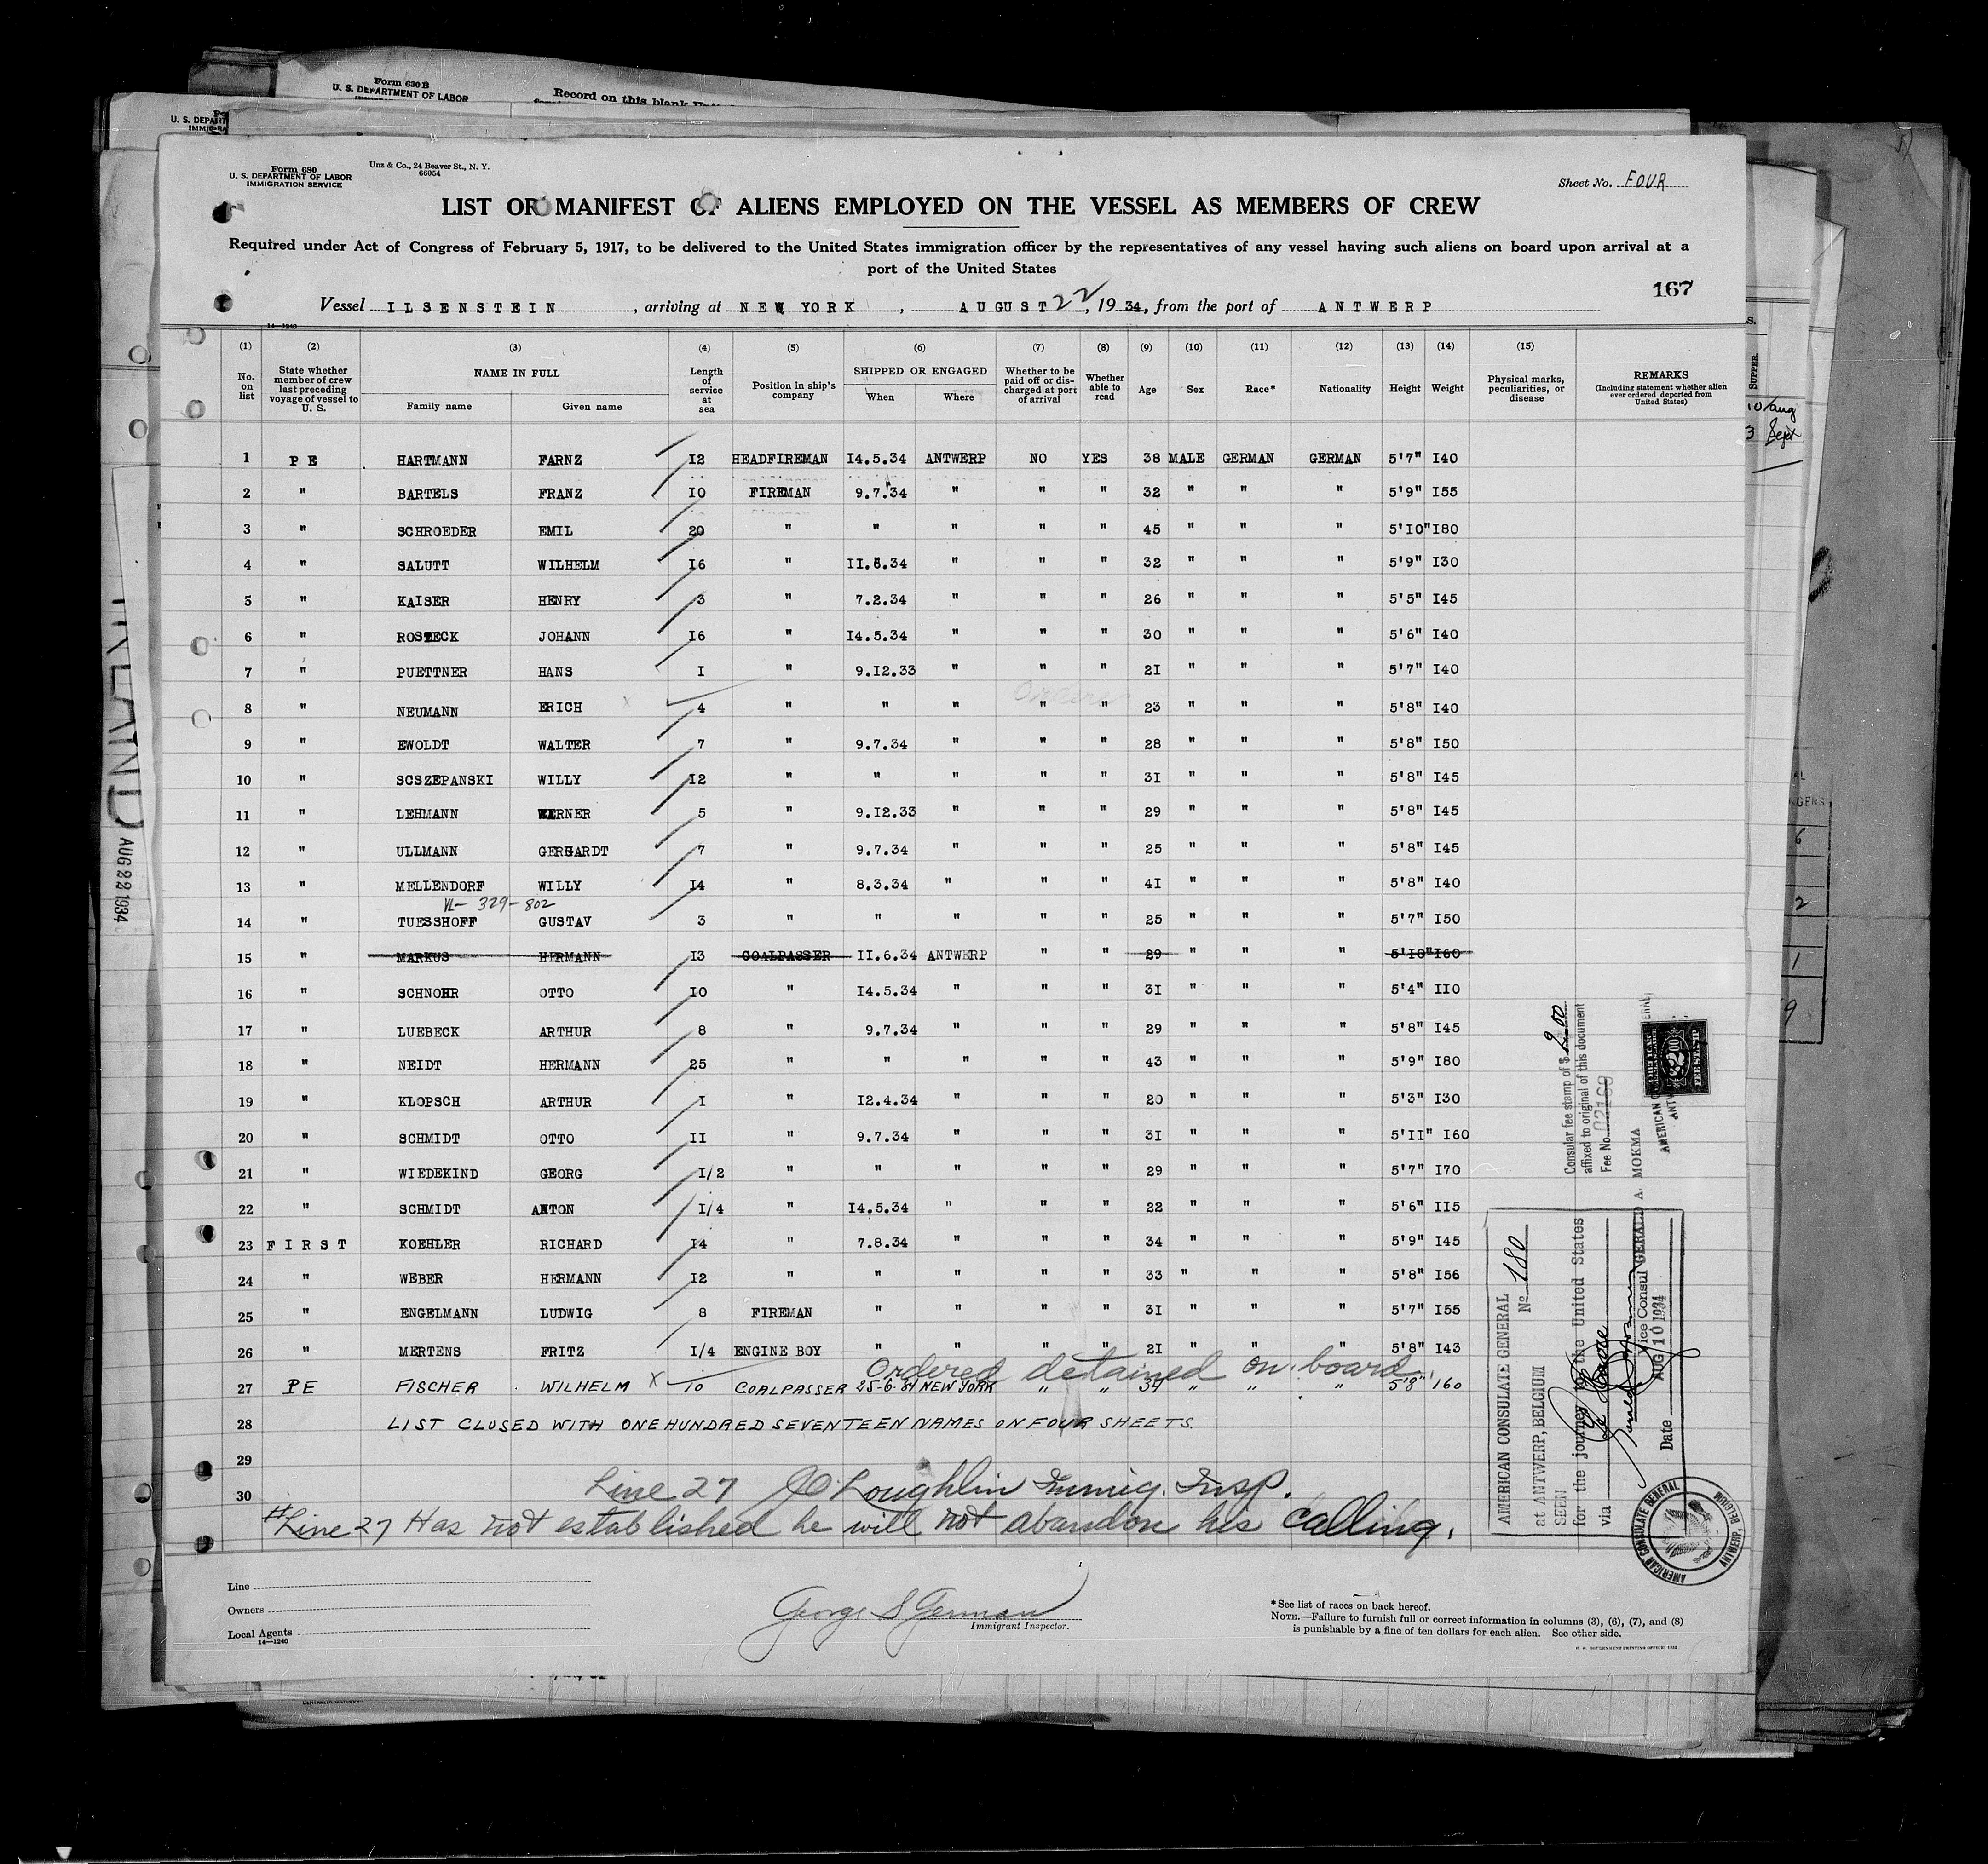 Form 630 B
U. S. DEPARTMENT OF LABOR
Record on this blank
U. S. DEPART
Form 680
U. S. DEPARTMENT OF LABOR
IMMIGRATION SERVICE
Unz & Co., 24 Beaver St., N. Y.
66054
Sheet No. FOUR
LIST OR MANIFEST OF ALIENS EMPLOYED ON THE VESSEL AS MEMBERS OF CREW
Required under Act of Congress of February 5, 1917, to be delivered to the United States immigration officer by the representatives of any vessel having such aliens on board upon arrival at a
port of the United States
167
Vessel ILSENSTEIN, arriving at NEW YORK, AUGUST 22, 1934, from the port of ANTWERP
14-1240
(1) (2) (3) (4) (5) (6) (7) (8) (9) (10) (11) (12) (13) (14) (15)
No. on list | State whether member of crew last preceding voyage of vessel to U. S. | NAME IN FULL Family name Given name | Length of service at sea | Position in ship's company | SHIPPED OR ENGAGED When Where | Whether to be paid off or discharged at port of arrival | Whether able to read | Age | Sex | Race* | Nationality | Height | Weight | Physical marks, peculiarities, or disease | REMARKS (Including statement whether alien ever ordered deported from United States)
1 PE HARTMANN FARNZ I2 HEADFIREMAN I4.5.34 ANTWERP NO YES 38 MALE GERMAN GERMAN 5'7" I40
2 " BARTELS FRANZ I0 FIREMAN 9.7.34 " " " 32 " " " 5'9" I55
3 " SCHROEDER EMIL 20 " " " " " 45 " " " 5'I0" I80
4 " SALUTT WILHELM I6 " II.6.34 " " " 32 " " " 5'9" I30
5 " KAISER HENRY 3 " 7.2.34 " " " 26 " " " 5'5" I45
6 " ROSTECK JOHANN I6 " I4.5.34 " " " 30 " " " 5'6" I40
7 " PUETTNER HANS I " 9.I2.33 " " " 2I " " " 5'7" I40
8 " NEUMANN ERICH 4 " " " " " 23 " " " 5'8" I40
9 " EWOLDT WALTER 7 " 9.7.34 " " " 28 " " " 5'8" I50
10 " SCSZEPANSKI WILLY I2 " " " " " 3I " " " 5'8" I45
11 " LEHMANN WERNER 5 " 9.I2.33 " " " 29 " " " 5'8" I45
12 " ULLMANN GERHARDT 7 " 9.7.34 " " " 25 " " " 5'8" I45
13 " MELLENDORF WILLY I4 " 8.3.34 " " " 4I " " " 5'8" I40
VL- 329-802
14 " TUESSHOFF GUSTAV 3 " " " " " 25 " " " 5'7" I50
15 " MARKUS HERMANN I3 COALPASSER II.6.34 ANTWERP " " 29 " " " 5'I0" I60
16 " SCHNOHR OTTO I0 " I4.5.34 " " " 3I " " " 5'4" II0
17 " LUEBECK ARTHUR 8 " 9.7.34 " " " 29 " " " 5'8" I45
18 " NEIDT HERMANN 25 " " " " " 43 " " " 5'9" I80
19 " KLOPSCH ARTHUR I " I2.4.34 " " " 20 " " " 5'3" I30
20 " SCHMIDT OTTO II " 9.7.34 " " " 3I " " " 5'II" I60
21 " WIEDEKIND GEORG I/2 " " " " " 29 " " " 5'7" I70
22 " SCHMIDT ANTON I/4 " I4.5.34 " " " 22 " " " 5'6" II5
23 FIRST KOEHLER RICHARD I4 " 7.8.34 " " " 34 " " " 5'9" I45
24 " WEBER HERMANN I2 " " " " " 33 " " " 5'8" I56
25 " ENGELMANN LUDWIG 8 FIREMAN " " " " 3I " " " 5'7" I55
26 " MERTENS FRITZ I/4 ENGINE BOY " " " " 2I " " " 5'8" I43
Ordered detained on board
27 PE FISCHER WILHELM X 10 COALPASSER 25-6-34 NEW YORK " " 37 " " " 5'8" 160
28 LIST CLOSED WITH ONE HUNDRED SEVENTEEN NAMES ON FOUR SHEETS.
29
Line 27 J O'Loughlin Immig. Insp.
30
#Line 27 Has not established he will not abandon his calling.
Consular fee stamp of $ 2.00
affixed to original of this document
Fee No.
AMERICAN
$2.00
FEE STAMP
AMERICAN CONSULATE GENERAL
No 180
at ANTWERP, BELGIUM
SEEN
for the journey to the United States
via
GERALD A. MOKMA
Vice Consul
Date AUG 10 1934
AMERICAN CONSULATE GENERAL ANTWERP, BELGIUM
Line
Owners
Local Agents
14-1240
George S German
Immigrant Inspector.
*See list of races on back hereof.
NOTE.—Failure to furnish full or correct information in columns (3), (6), (7), and (8)
is punishable by a fine of ten dollars for each alien. See other side.
U. S. GOVERNMENT PRINTING OFFICE: 1932
AUG 22 1934
SUPPER.
10 Aug
3 Sept